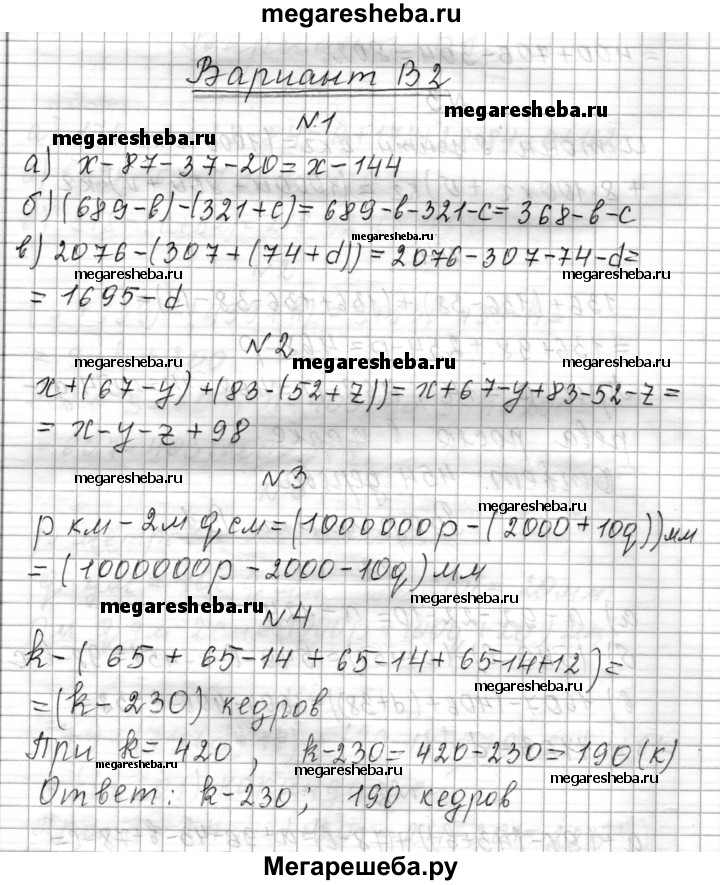 megaresheba.ru
Вариант В2
N1
megaresheba.ru
а) x-87-37-20=x-144
megaresheba.ru
б) (689-b)-(321+c)=689-b-321-c=368-b-c
megaresheba.ru
в) 2076-(307+(74+d))=2076-307-74-d=
megaresheba.ru megaresheba.ru
=1695-d
N2
megaresheba.ru megaresheba.ru megaresheba.ru
x+(67-y)+(83-(52+z))=x+67-y+83-52-z=
=x-y-z+98
N3
megaresheba.ru
megaresheba.ru
p км-2м q см=(1000000p-(2000+10q))мм
=(1000000p-2000-10q)мм
megaresheba.ru megaresheba.ru
N4
k-(65+65-14+65-14+65-14+12)=
megaresheba.ru
=(k-230) кедров
При k=420, k-230=420-230=190(к)
megaresheba.ru megaresheba.ru
Ответ: k-230; 190 кедров
Мегарешеба.ру